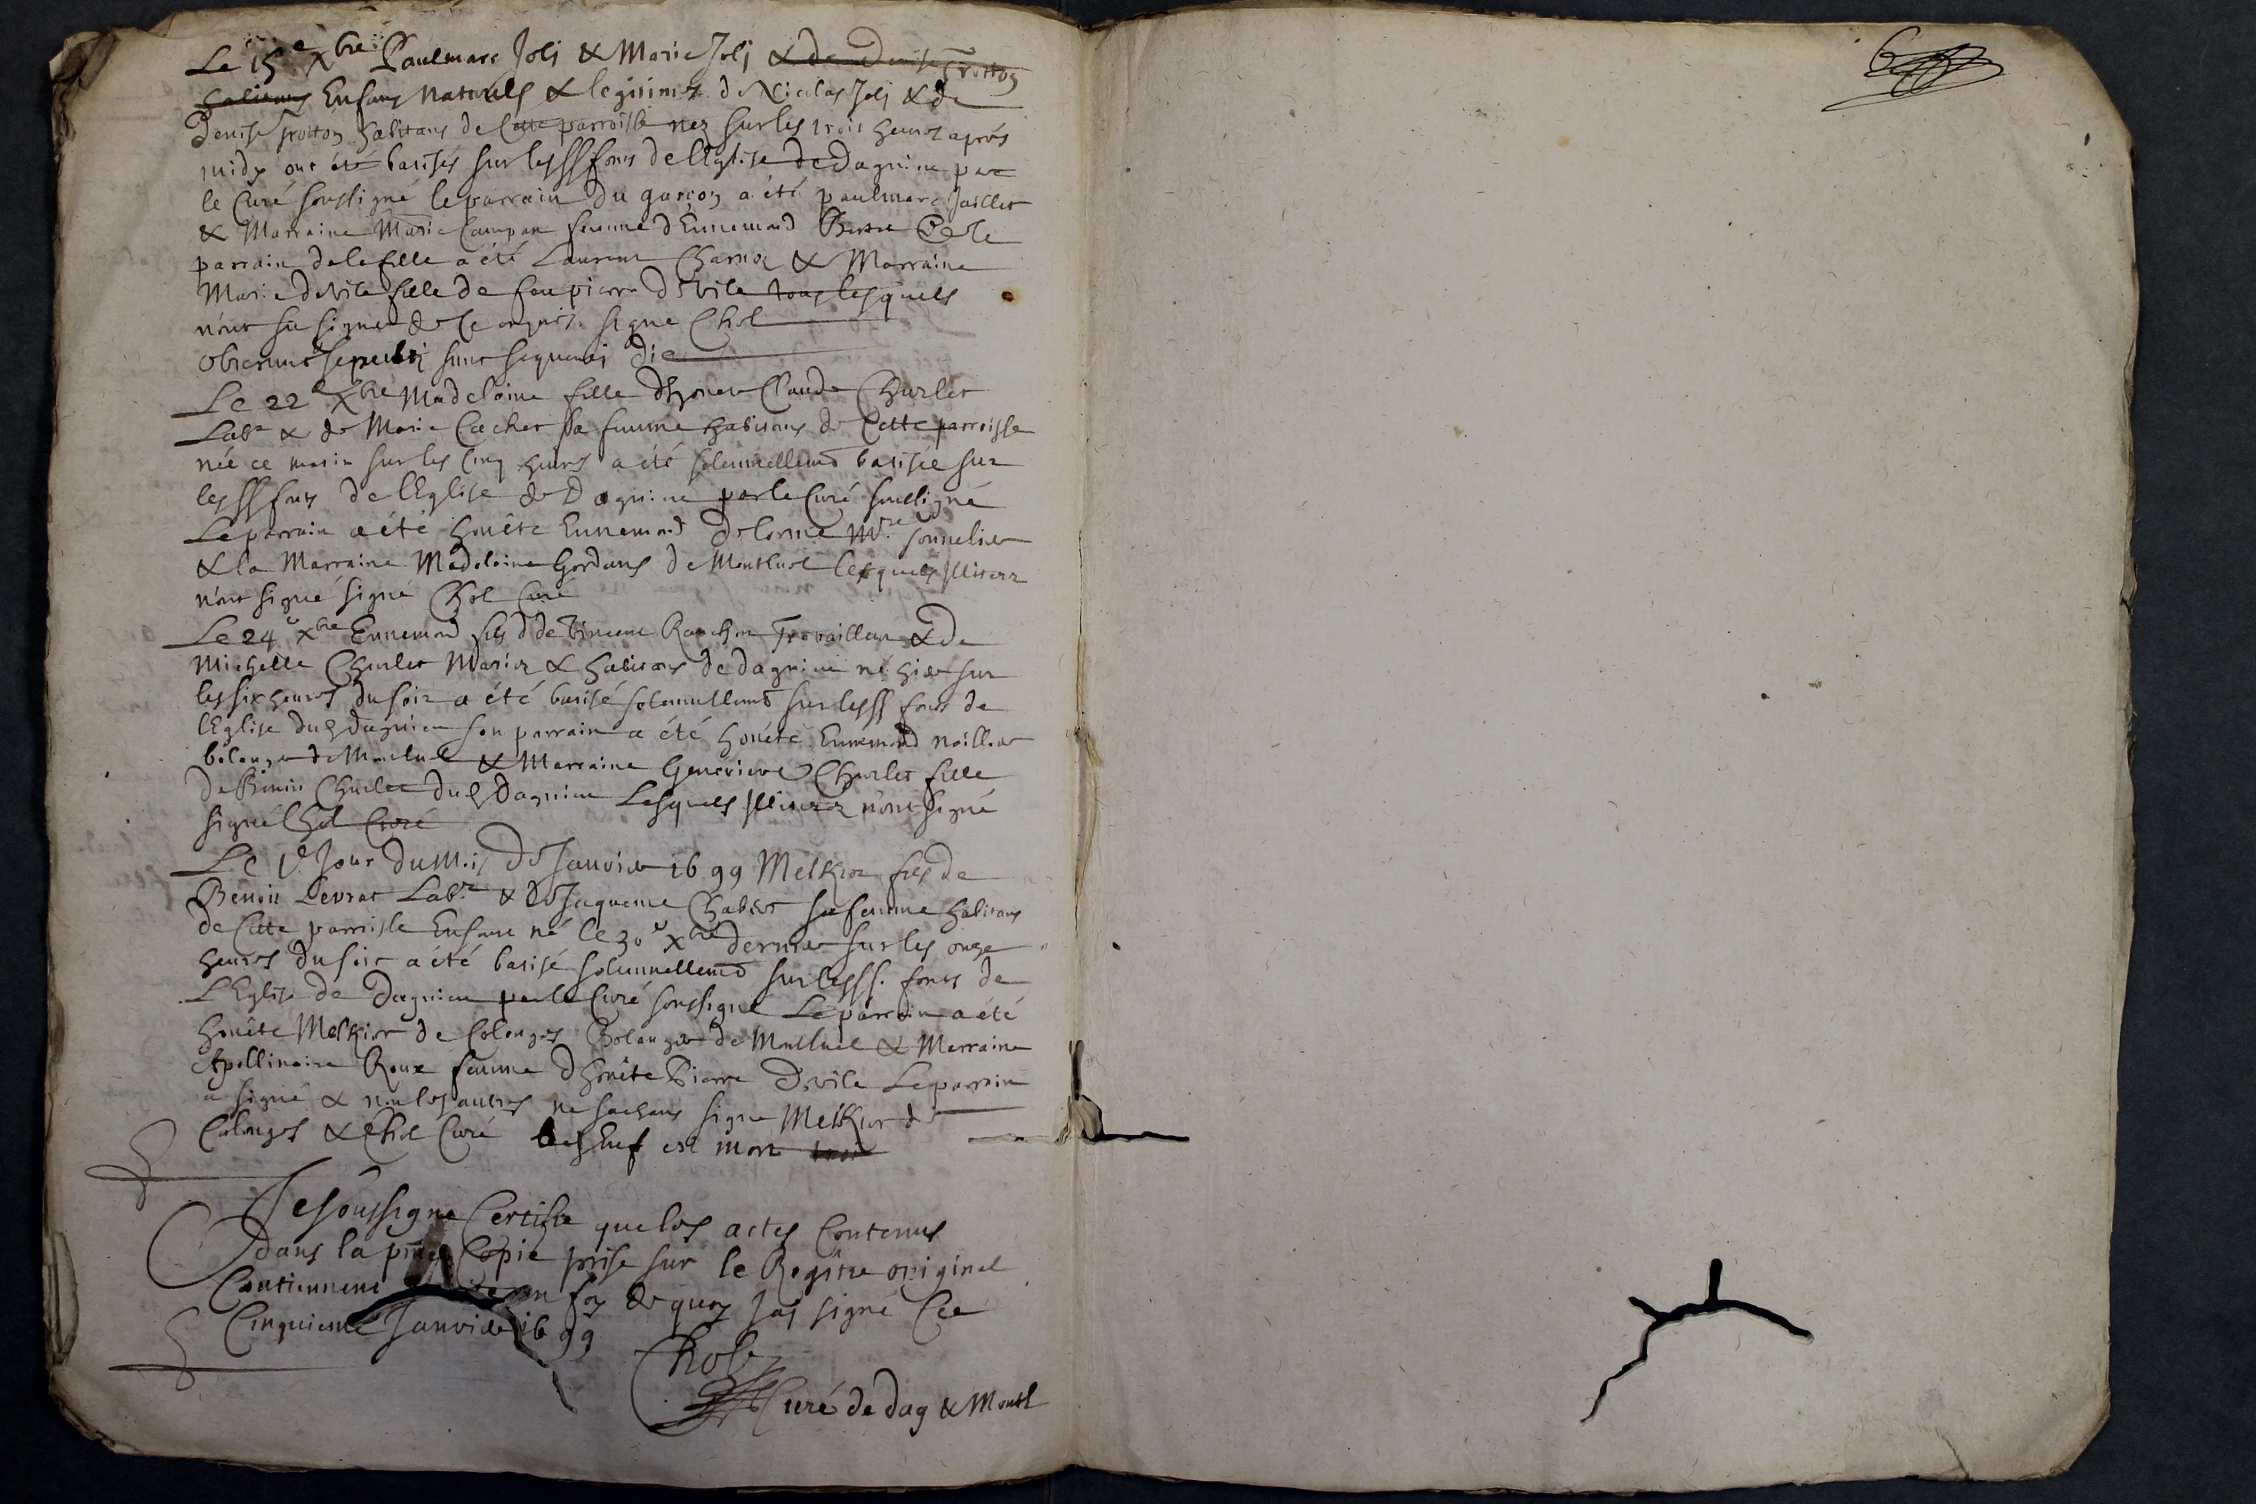 Le 15e Xbre Paulmarc Joli & Marie Joli & de Denise Trotton
habitans Enfans naturels & legitimes de Nicolas Joli & de
Denise Trotton habitans de Cette parroisse nez sur les trois heures aprés
midy ont été batisés sur les SS fons de l'Eglise de Dagnieu par
le Curé soussigné le parrain du garçon a été paulmarc Jaillet
& Marraine Marie Campan femme d'Ennemond & le
parrain de la fille a été Laurent Charnoz & Marraine
Marie Devile fille de feu pierre Devile tous lesquels
n'ont su signer de ce enquis signé Chol
obierunt sepulti sunt sequenti die
Le 22e Xbre Madeleine fille d'honête Claude Churlet
Labr & de Marie Cachet sa femme habitans de Cette parroisse
née ce matin sur les Cinq heures a été solennellemt batisée sur
les SS fons de l'Eglise de Dagnieu par le Curé soussigné
Le parrain a été honête Ennemond Delorme Mre
& la Marraine Madeleine Gordans de Montluel lesquels Illiterez
n'ont signé signé Chol Curé
Le 24e Xbre Ennemond fils de Vincent Travailleur & de
Michelle Churlet Mariez & habitans de Dagnieu né hier sur
les six heures du soir a été batisé solennellemt sur les SS fons de
l'Eglise dud Dagnieu son parrain a été honête Ennemond
bolanger de Montluel & Marraine Geneviève Churlet fille
de Benoit Churlet dud Dagnieu Lesquels Illiterez n'ont signé
signé Chol Curé
Le 1e Jour du Mois de Janvier 1699 Melkior fils de
Benoit Levrat Labr & de Jaqueme Chabert sa femme habitans
de Cette parroisse Enfant né le 30e Xbre dernier sur les onze
heures du soir a été batisé solennellemt sur les SS. fons de
L'Eglise de Dagnieu par le Curé soussigné Le parrain a été
honête Melkior de Colonges Bolanger de Montluel & Marraine
Apollinaire Roux femme d'honête Pierre Devile Le parrain
a signé & non les autres ne sachans signer Melkior de
Colonges & Chol Curé est mort
Je soussigné Certifie que les actes Contenus
dans la pnte Copie prise sur le Regitre original
Contiennent en foy de quoy Jay signé Ce
Cinquieme Janvier 1699
Chol
Curé de Dag & Montl
6